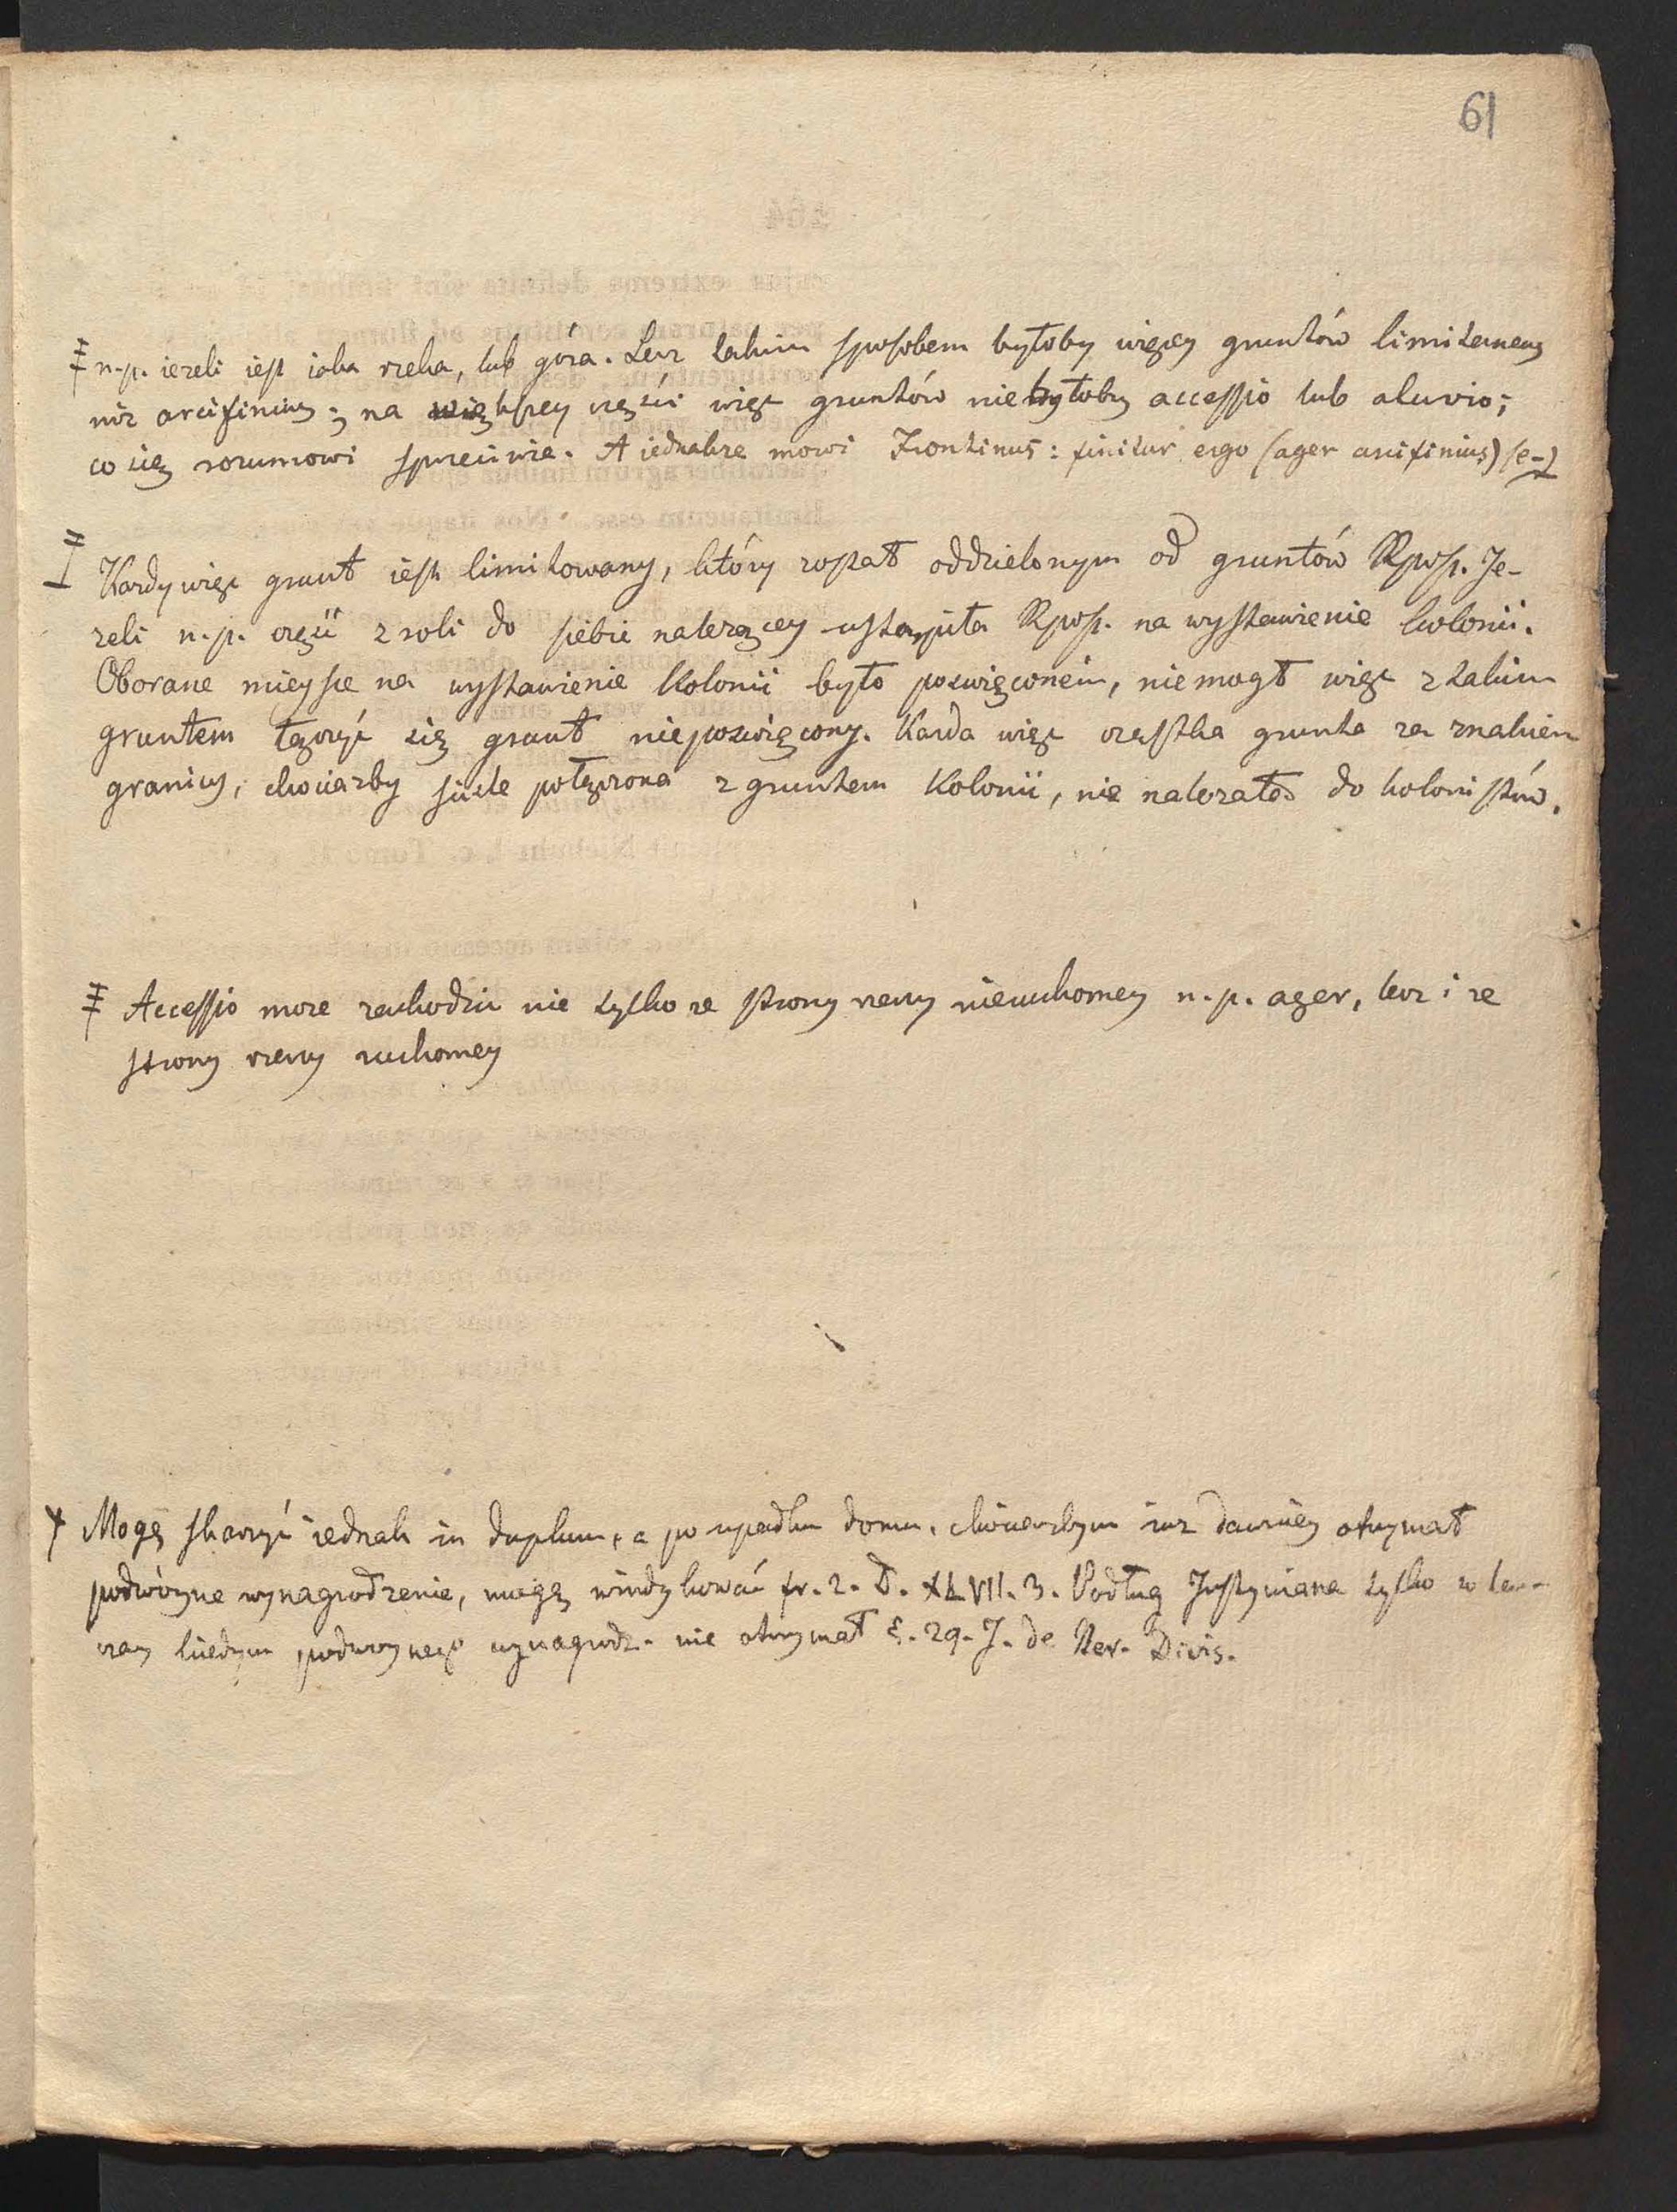 61
‡ n.p. iezeli iest iaka rzeka, lub góra. Lecz takim sposobem byłoby więcey gruntów limitaneus
niz arcifinius; na większey części więc gruntów niebyłoby accessio lub aluvio;
co się rozumowi sprzeciwia. A iednakze mowi Frontinus: finitur ergo (ager arcifinius) (e-)
‡ Kazdy więc grunt iest limitowany, który zostat oddzielonym od gruntów Rposp. Je-
zeli n.p. część z roli do siebie nalezącey ustąpiła Rposp. na wystawienie kolonii.
Oborane mieysce na wystawienie kolonii było poswięconem, niemogł więc z takim
gruntem łączyć się grunt nieposwięcony. Kazda więc cząstka grunta za znakiem
granicy, chociazby scisle połączona z gruntem kolonii, nie nalezała do kolonistów.
‡ Accessio moze zachodzić nie tylko ze strony rzeczy nieruchomey n.p. ager, lecz i ze
strony rzeczy ruchomey
+ Mogę skarzyć iednak in duplum, a po upadku domu, chociazbym iuz dawniey otrzymał
podwóyne wynagrodzenie, mogę windykować fr. 2. D. XLVII. 3. Podług Justyniana tylko w ten-
czas kiedym podwoynego wynagrodz. nie otrzymał §. 29. J. de Rer. Divis.